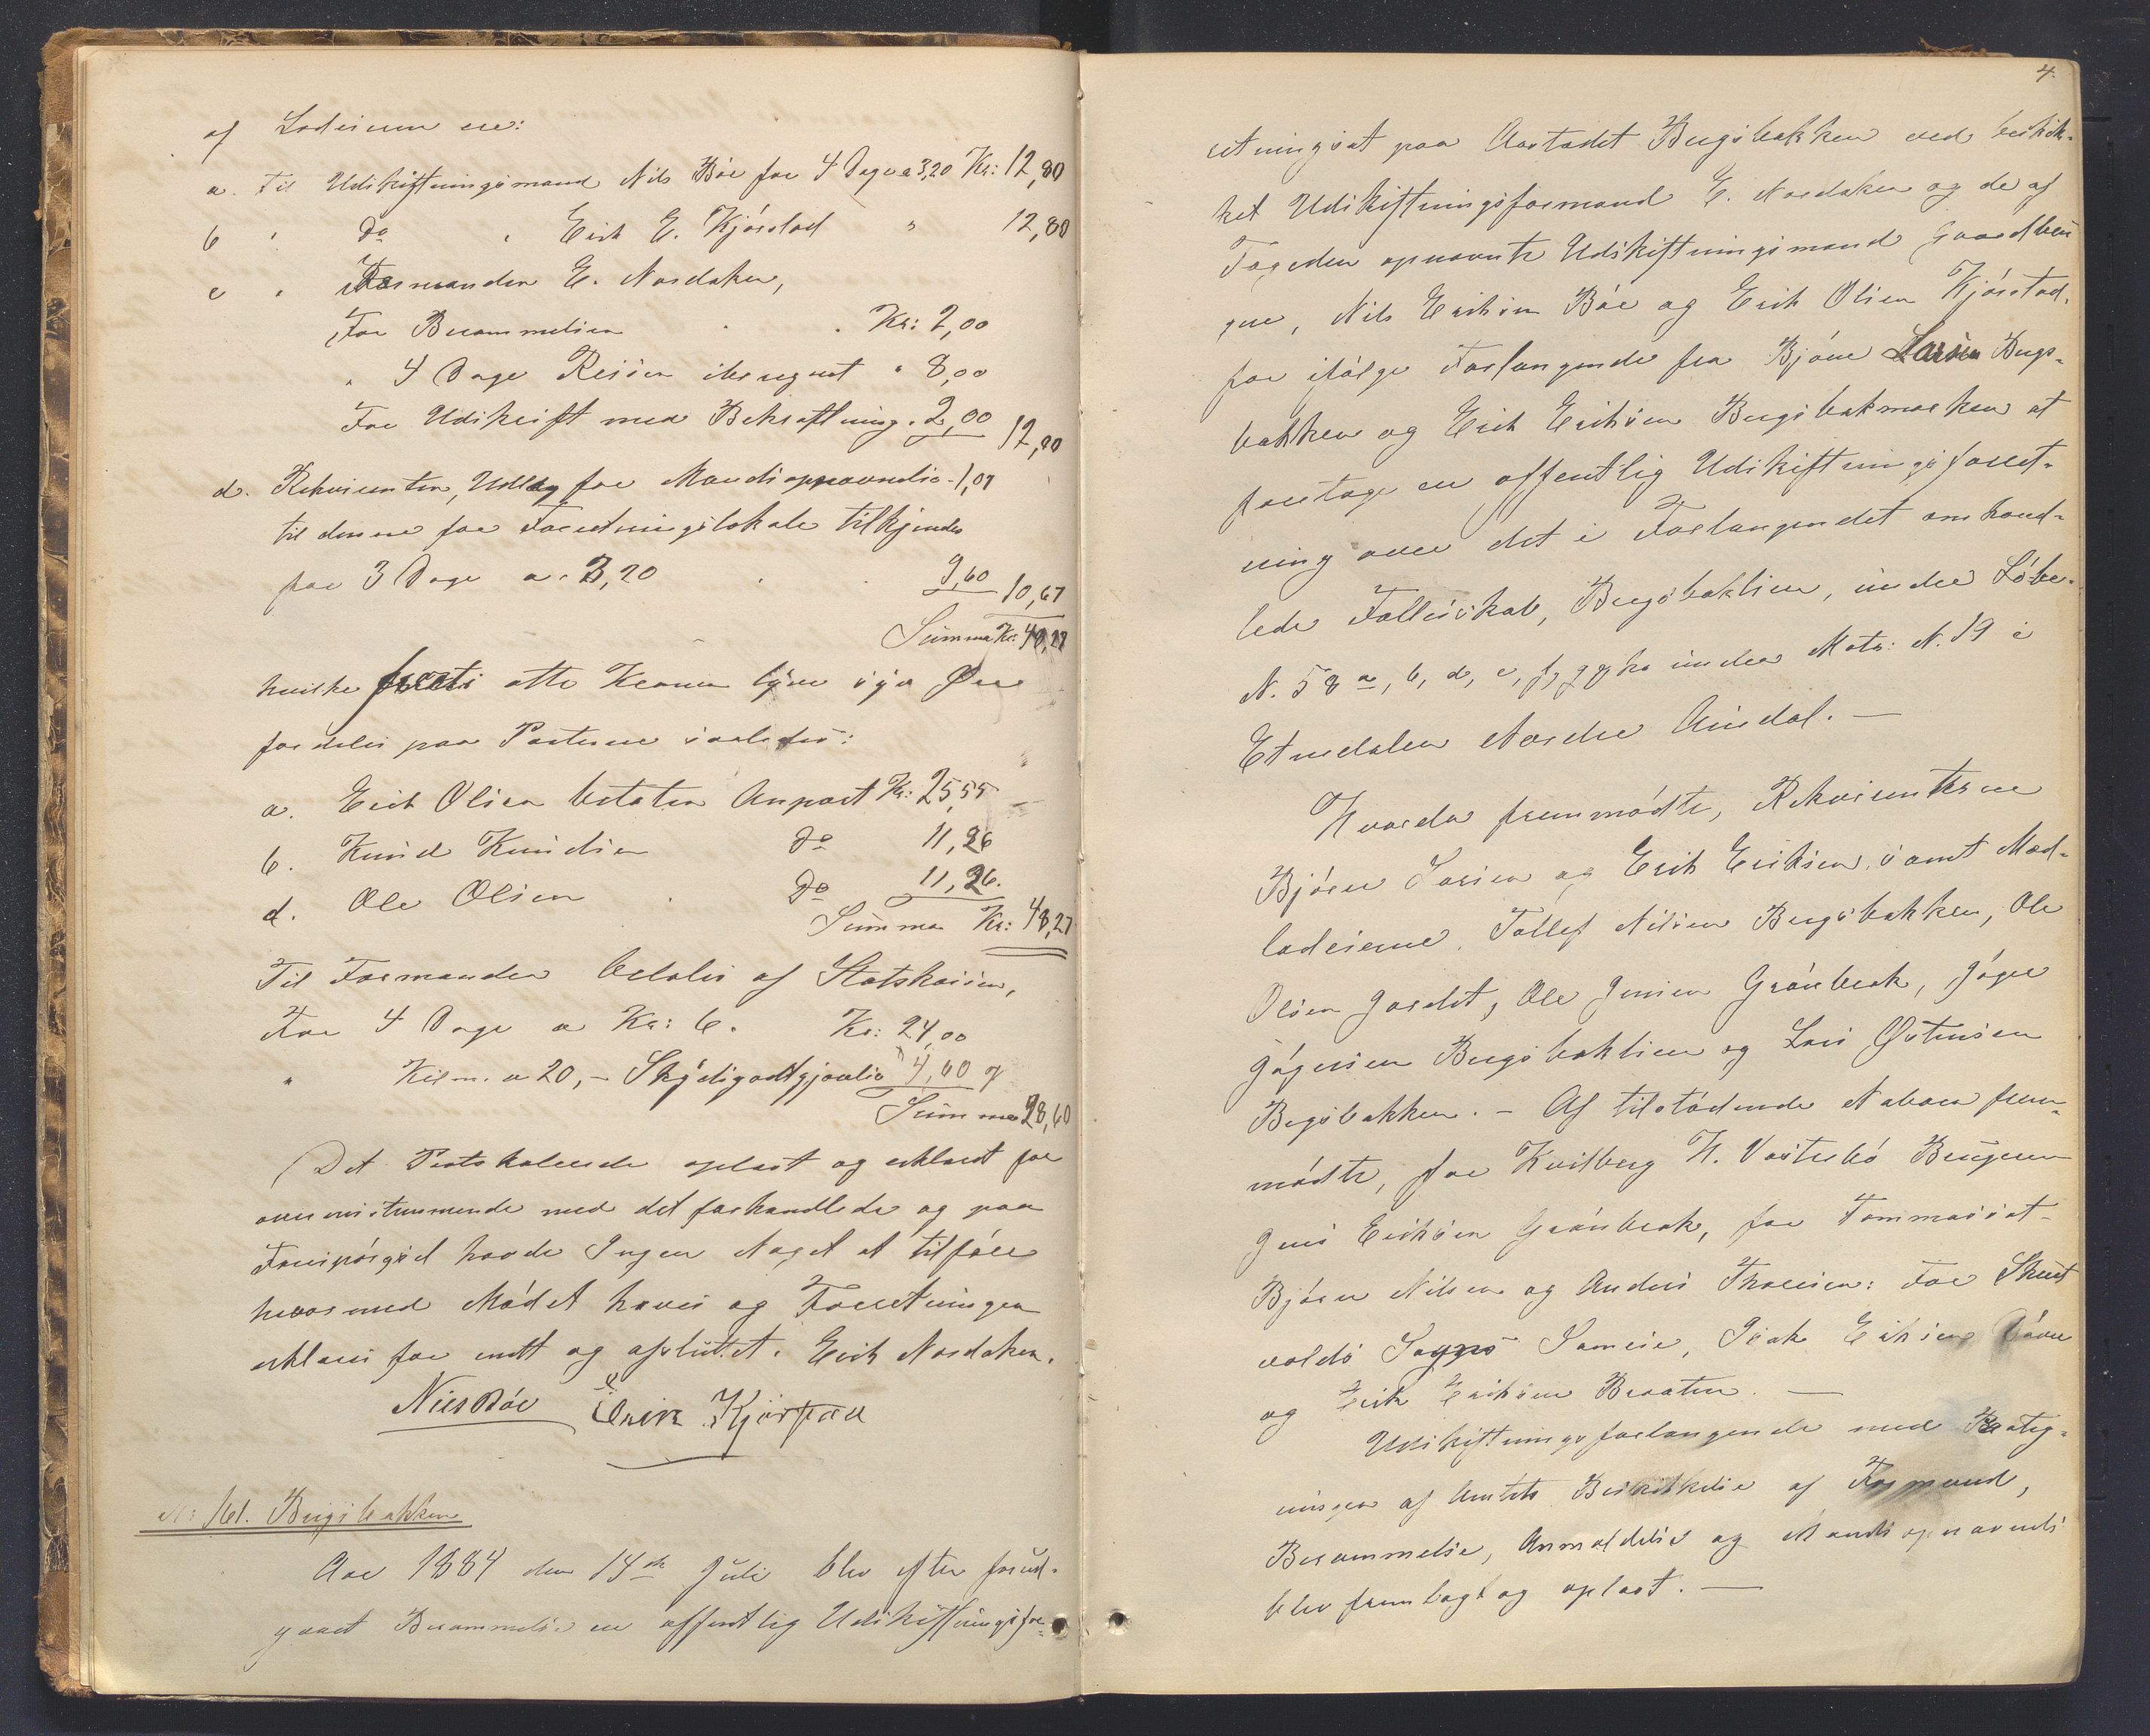 af Lodeierne ere:
a. Til Udskiftningsmand Nils Bøe for 4 Dage a 3,20 Kr: 12,80
b " do " Erik E. Kjørstad " 12,80
c " Formanden E. Nordaker,
For Berammelsen Kr: 2,00
" 4 Dage Reisen iberegnet " 8,00
For Udskrift med Bekræftning " 2,00 12,00
d. Rekvirenten, Udlæg for Mandsopnævnelse 1,07
til denne for Forretningslokale tilkjendes
for 3 Dage a. 3,20 9,60 10,67
Summa Kr: 48,27
hvilke førti otte Kroner tyve syv Øre
fordeles paa Parterne saaledes:
a. Erik Olsen betaler Anpart Kr: 25,55
b. Knud Knudsen do 11,36
d. Ole Olsen do 11,36.
Summa Kr: 48,27
Til Formanden betales af Statskassen,
For 4 Dage a Kr: 6. Kr: 24,00
" Kilm. a 20, – Skydsgodtgjørelse 4,60
Summa 28,60
Det Protokolerede oplæst og erklæret for
overensstemmende med det forhandlede og paa
Forespørgsel havde Ingen Noget at tilføre
hvormed Mødet hæves og Forretningen
erklæres for endt og afsluttet. Erik Nordaker.
Nils Bøe Erik Kjørstad
N: 161. Bergsbakken
Aar 1884 den 14de Juli blev efter forud-
gaaet Berammelse en offentlig Udskiftningsfor-
4.
retning sat paa Aastedet Bergsbakken ved beskik-
ket Udskiftningsformand E. Nordaker og de af
Fogeden opnævnte Udskiftningsmænd Gaardbru
gere, Nils Eriksen Bøe og Erik Olsen Kjørstad,
for ifølge Forlangende fra Bjørn Larsen Bergs-
bakken og Erik Eriksen Bergsbakmarken at
foretage en offentlig Udskiftningsforret-
ning over det i Forlangendet omhand-
lede Fællesskab, Bergsbaklien, under Løbe-
N. 58 a, b, d, e, f, g under Matr: N. 19 i
Etnedalen Nordre Aurdal. —
Hvorda fremmødte, Rekvirenterne
Bjørn Larsen og Erik Eriksen, samt Med-
lodeierne, Tollef Nilsen Bergsbakken, Ole
Olsen Jordet, Ole Jensen Grønbræk, Jøger
Jøgersen Bergsbaklien og Lars Østensen
Bergsbakken. – Af tilstødende Naboer frem-
mødte, for Kvilberg H. Vesterbø Brugeren
Jens Eriksen Grønbræk, for Tommasset
Bjørn Nilsen og Anders Thoresen: For Skrut
volds Sogns Sameie, Isak Eriksen
og Erik Eriksen Braaten. —
Udskiftningsforlangende med Pateg-
ninger af Amtets Beskikkelse af Formand,
Berammelse, Anmeldelse og Mandsopnævnels
blev fremlagt og oplæst. —